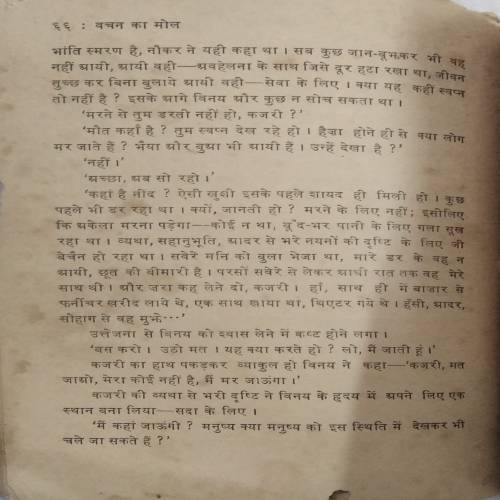 ६६ : वचन का मोल
भांति स्मरण है, नौकर ने यही कहा था । सब कुछ जान-बूझकर भी वह
नहीं आयी, आयी वही—अवहेलना के साथ जिसे दूर हटा रखा था, जीवन
तुच्छ कर बिना बुलाये आयी वही—सेवा के लिए । क्या यह कहीं स्वप्न
तो नहीं है ? इसके आगे विनय और कुछ न सोच सकता था ।
'मरने से तुम डरती नहीं हो, कजरी ?'
'मौत कहाँ है ? तुम स्वप्न देख रहे हो । हैजा होने ही से क्या लोग
मर जाते हैं ? भैया और बुआ भी आयी हैं । उन्हें देखा है ?'
'नहीं ।'
'अच्छा, अब सो रहो ।'
'कहां है नींद ? ऐसी खुशी इसके पहले शायद ही मिली हो । कुछ
पहले भी डर रहा था । क्यों, जानती हो ? मरने के लिए नहीं; इसीलिए
कि अकेला मरना पड़ेगा—कोई न था, बूँद-भर पानी के लिए गला सूख
रहा था । व्यथा, सहानुभूति, आदर से भरे नयनों की दृष्टि के लिए जी
बेचैन हो रहा था । सवेरे मनि को बुला भेजा था, मारे डर के वह न
आयी, छूत की बीमारी है । परसों सवेरे से लेकर आधी रात तक वह मेरे
साथ थी । और जरा कह लेने दो, कजरी । हाँ, साथ ही में बाजार से
फर्नीचर खरीद लाये थे, एक साथ खाया था, थिएटर गये थे । हँसी, आदर,
सोहाग से वह मुझे···'
उत्तेजना से विनय को श्वास लेने में कष्ट होने लगा ।
'बस करो । उठो मत । यह क्या करते हो ? लो, मैं जाती हूं ।'
कजरी का हाथ पकड़कर व्याकुल हो विनय ने कहा—'कजरी, मत
जाओ, मेरा कोई नहीं है, मैं मर जाऊंगा ।'
कजरी की व्यथा से भरी दृष्टि ने विनय के हृदय में अपने लिए एक
स्थान बना लिया—सदा के लिए ।
'मैं कहां जाऊंगी ? मनुष्य क्या मनुष्य को इस स्थिति में देखकर भी
चले जा सकते हैं ?'